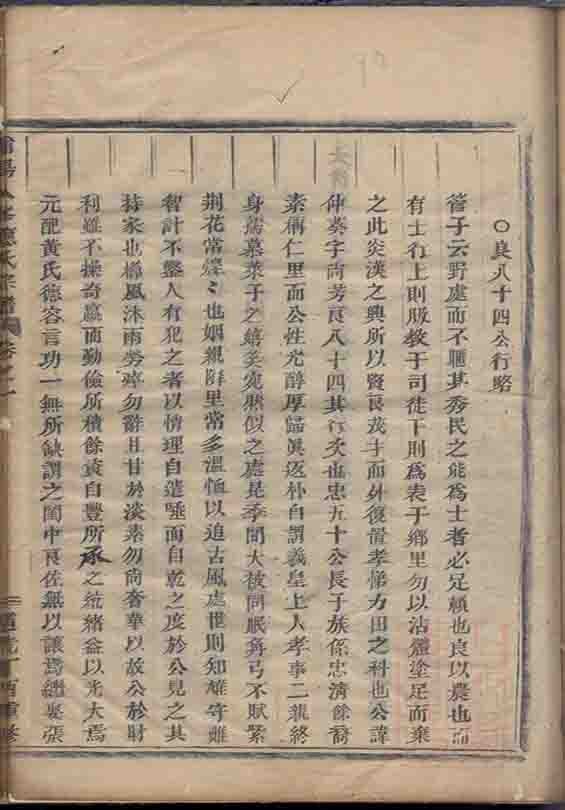 ○良八十四公行略
管子云野處而不匿其秀民之能為士者必足賴也良以農也而
有士行上則服教于司徒下則為表于鄉里勿以沾體塗足而棄
之此炎漢之興所以賢良茂才而外復置孝悌力田之科也公諱
仲葵字尚芳良八十四其行次也忠五十公長子族係忠清餘裔
素稱仁里而公性尤醇厚歸眞返朴自謂義皇上人孝事二親終
身孺慕萊子之嬉笑宛然似之處昆季間大被同眠角弓不賦紫
荆花常燦燦也姻親隣里常多溫恤以追古風處世則知雄守雌
智計不鑿人有犯之者以情理自遣唾面自乾之度於公見之其
持家也櫛風沐雨勞瘁勿辭且甘於淡素勿尚奢華以故公於財
利雖不操奇贏而勤儉所積餘囊自豐所承之統緒益以光大焉
元配黃氏德容言功一無所缺謂之閨中良佐無以讓焉繼娶張
氏宗譜 卷之一
丁酉重修